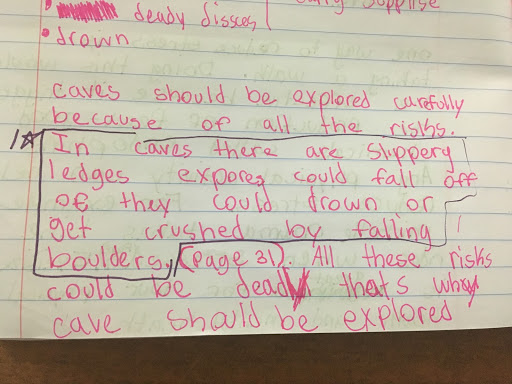 • deady disses
supplise
• drown
caves should be explored carefully
because of all the risks.
1☆ In caves there are slippery
ledges expores could fall off
of they could drown or
get crushed by falling
boulders, (page 31). All these risks
could be deady thats why
cave should be explored